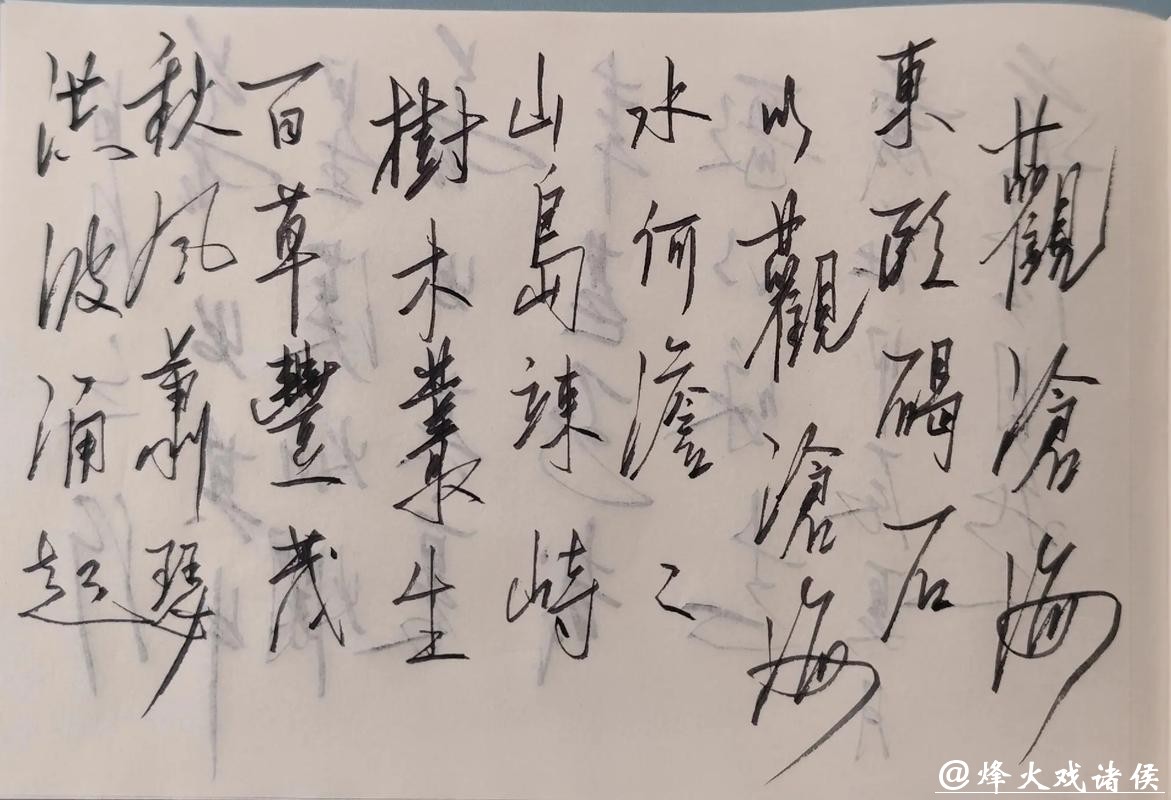 觀滄海
東臨碣石
以觀滄海
水何澹〻
山島竦峙
樹木叢生
百草豐茂
秋風蕭瑟
洪波涌起
@烽火戏诸侯